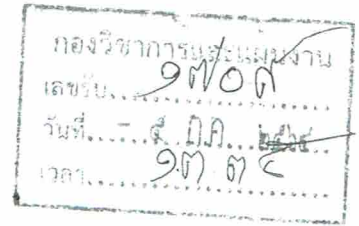 กองวิชาการและแผนงาน
เลขรับ ๑๗๐๙
วันที่ - ๕ กค
เวลา ๑๓.๓๔